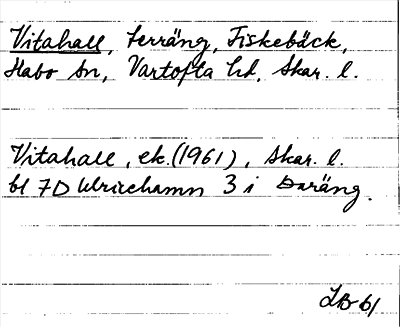 Vitahall, terräng, Fiskebäck,
Habo sn, Vartofta hd, Skar. l.
Vitahall, ek. (1961), Skar. l.
bl 7D Ulricehamn 3 i Daräng.
LB 61